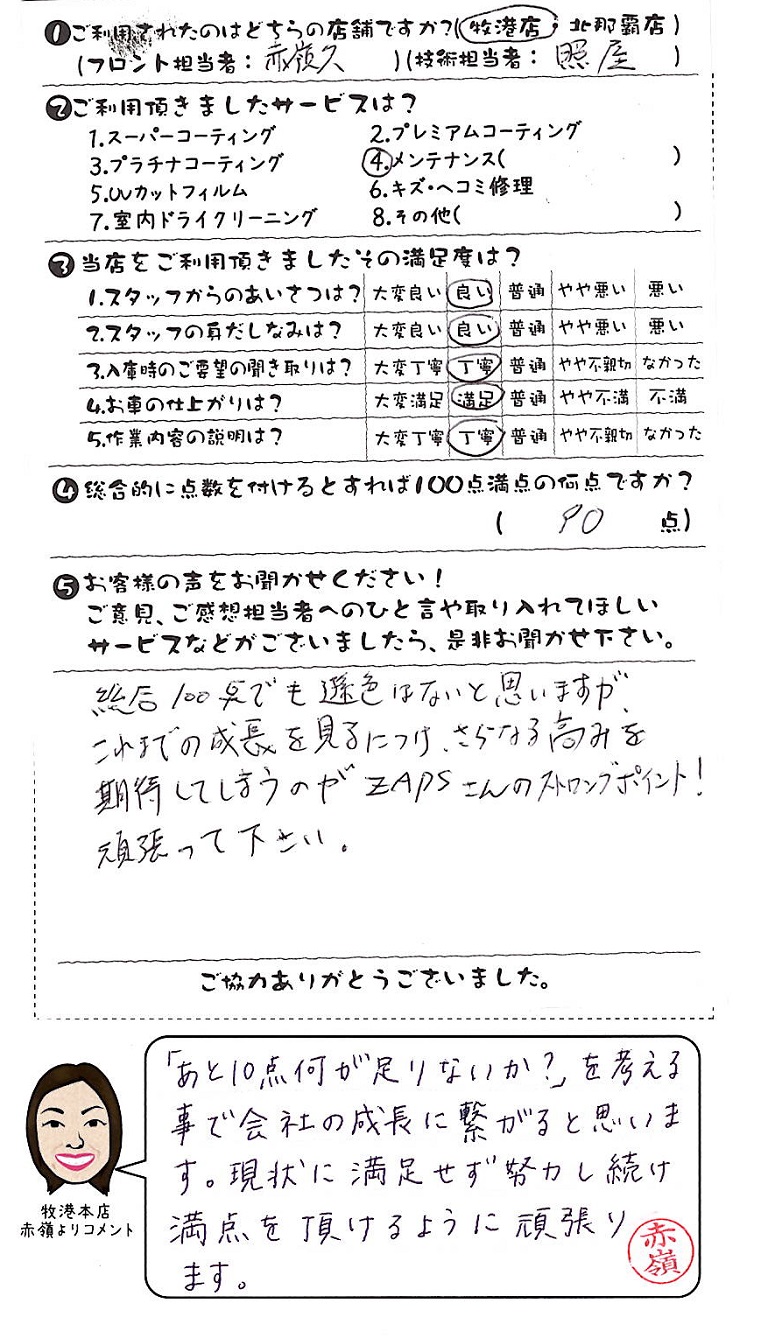 ❶ご利用されたのはどちらの店舗ですか?(牧港店・北那覇店)
(フロント担当者:赤嶺久 )(技術担当者:照屋 )
❷ご利用頂きましたサービスは?
1.スーパーコーティング 2.プレミアムコーティング
3.プラチナコーティング 4.メンテナンス( )
5.UVカットフィルム 6.キズ・ヘコミ修理
7.室内ドライクリーニング 8.その他( )
❸当店をご利用頂きましたその満足度は?
1.スタッフからのあいさつは? 大変良い 良い 普通 やや悪い 悪い
2.スタッフの身だしなみは? 大変良い 良い 普通 やや悪い 悪い
3.入庫時のご要望の聞き取りは? 大変丁寧 丁寧 普通 やや不親切 なかった
4.お車の仕上がりは? 大変満足 満足 普通 やや不満 不満
5.作業内容の説明は? 大変丁寧 丁寧 普通 やや不親切 なかった
❹総合的に点数を付けるとすれば100点満点の何点ですか?
( 90 点)
❺お客様の声をお聞かせください!
ご意見、ご感想担当者へのひと言や取り入れてほしい
サービスなどがございましたら、是非お聞かせ下さい。
総合100点でも遜色はないと思いますが、
これまでの成長を見るにつけ、さらなる高みを
期待してしまうのがZAPSさんのストロングポイント!
頑張って下さい。
ご協力ありがとうございました。
「あと10点何が足りないか?」を考える
事で会社の成長に繋がると思いま
す。現状に満足せず努力し続け
満点を頂けるように頑張り
ます。
赤嶺
牧港本店
赤嶺よりコメント